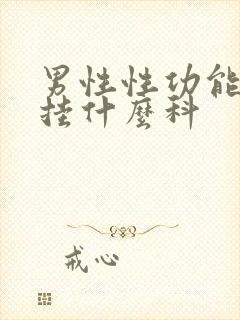 男性性功能
挂什麽科
戒心